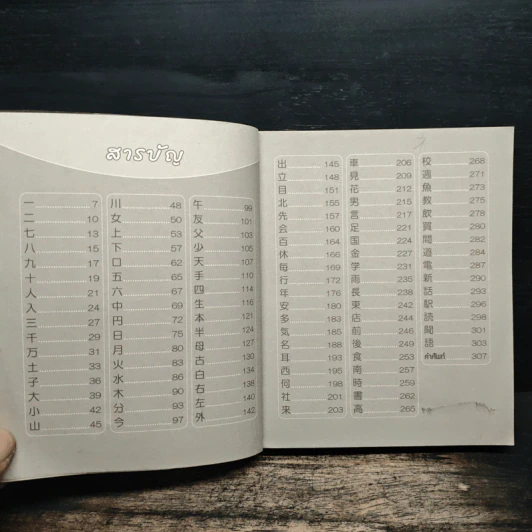 สารบัญ
一 7
二 10
七 13
八 15
九 17
十 19
人 21
入 24
三 27
千 29
万 31
土 33
子 36
大 39
小 42
山 45
川 48
女 50
上 53
下 57
口 62
五 65
六 67
中 69
円 72
日 75
月 80
火 83
水 86
木 90
分 93
今 97
午 99
友 101
父 103
少 105
天 107
手 110
四 114
生 116
本 121
半 124
母 127
古 130
白 134
右 138
左 140
外 142
出 145
立 148
目 151
北 155
先 157
会 160
百 164
休 166
毎 169
行 172
年 176
安 180
多 183
気 185
名 188
耳 193
西 195
何 198
社 201
来 203
車 206
見 209
花 212
男 215
言 217
足 221
国 224
金 227
学 231
雨 235
長 238
東 242
店 244
前 246
後 249
食 253
南 257
時 259
書 262
高 265
校 268
週 271
魚 273
教 275
飲 278
買 280
間 282
道 284
電 287
新 290
話 293
駅 296
読 298
聞 301
語 303
คำศัพท์ 307